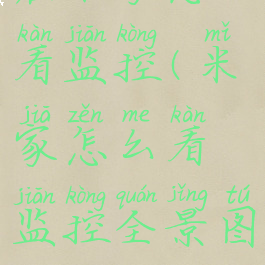 kàn jiān kòng mǐ
看监控(米
jiā zěn me kàn
家怎么看
jiān kòng quán jǐng tú
监控全景图